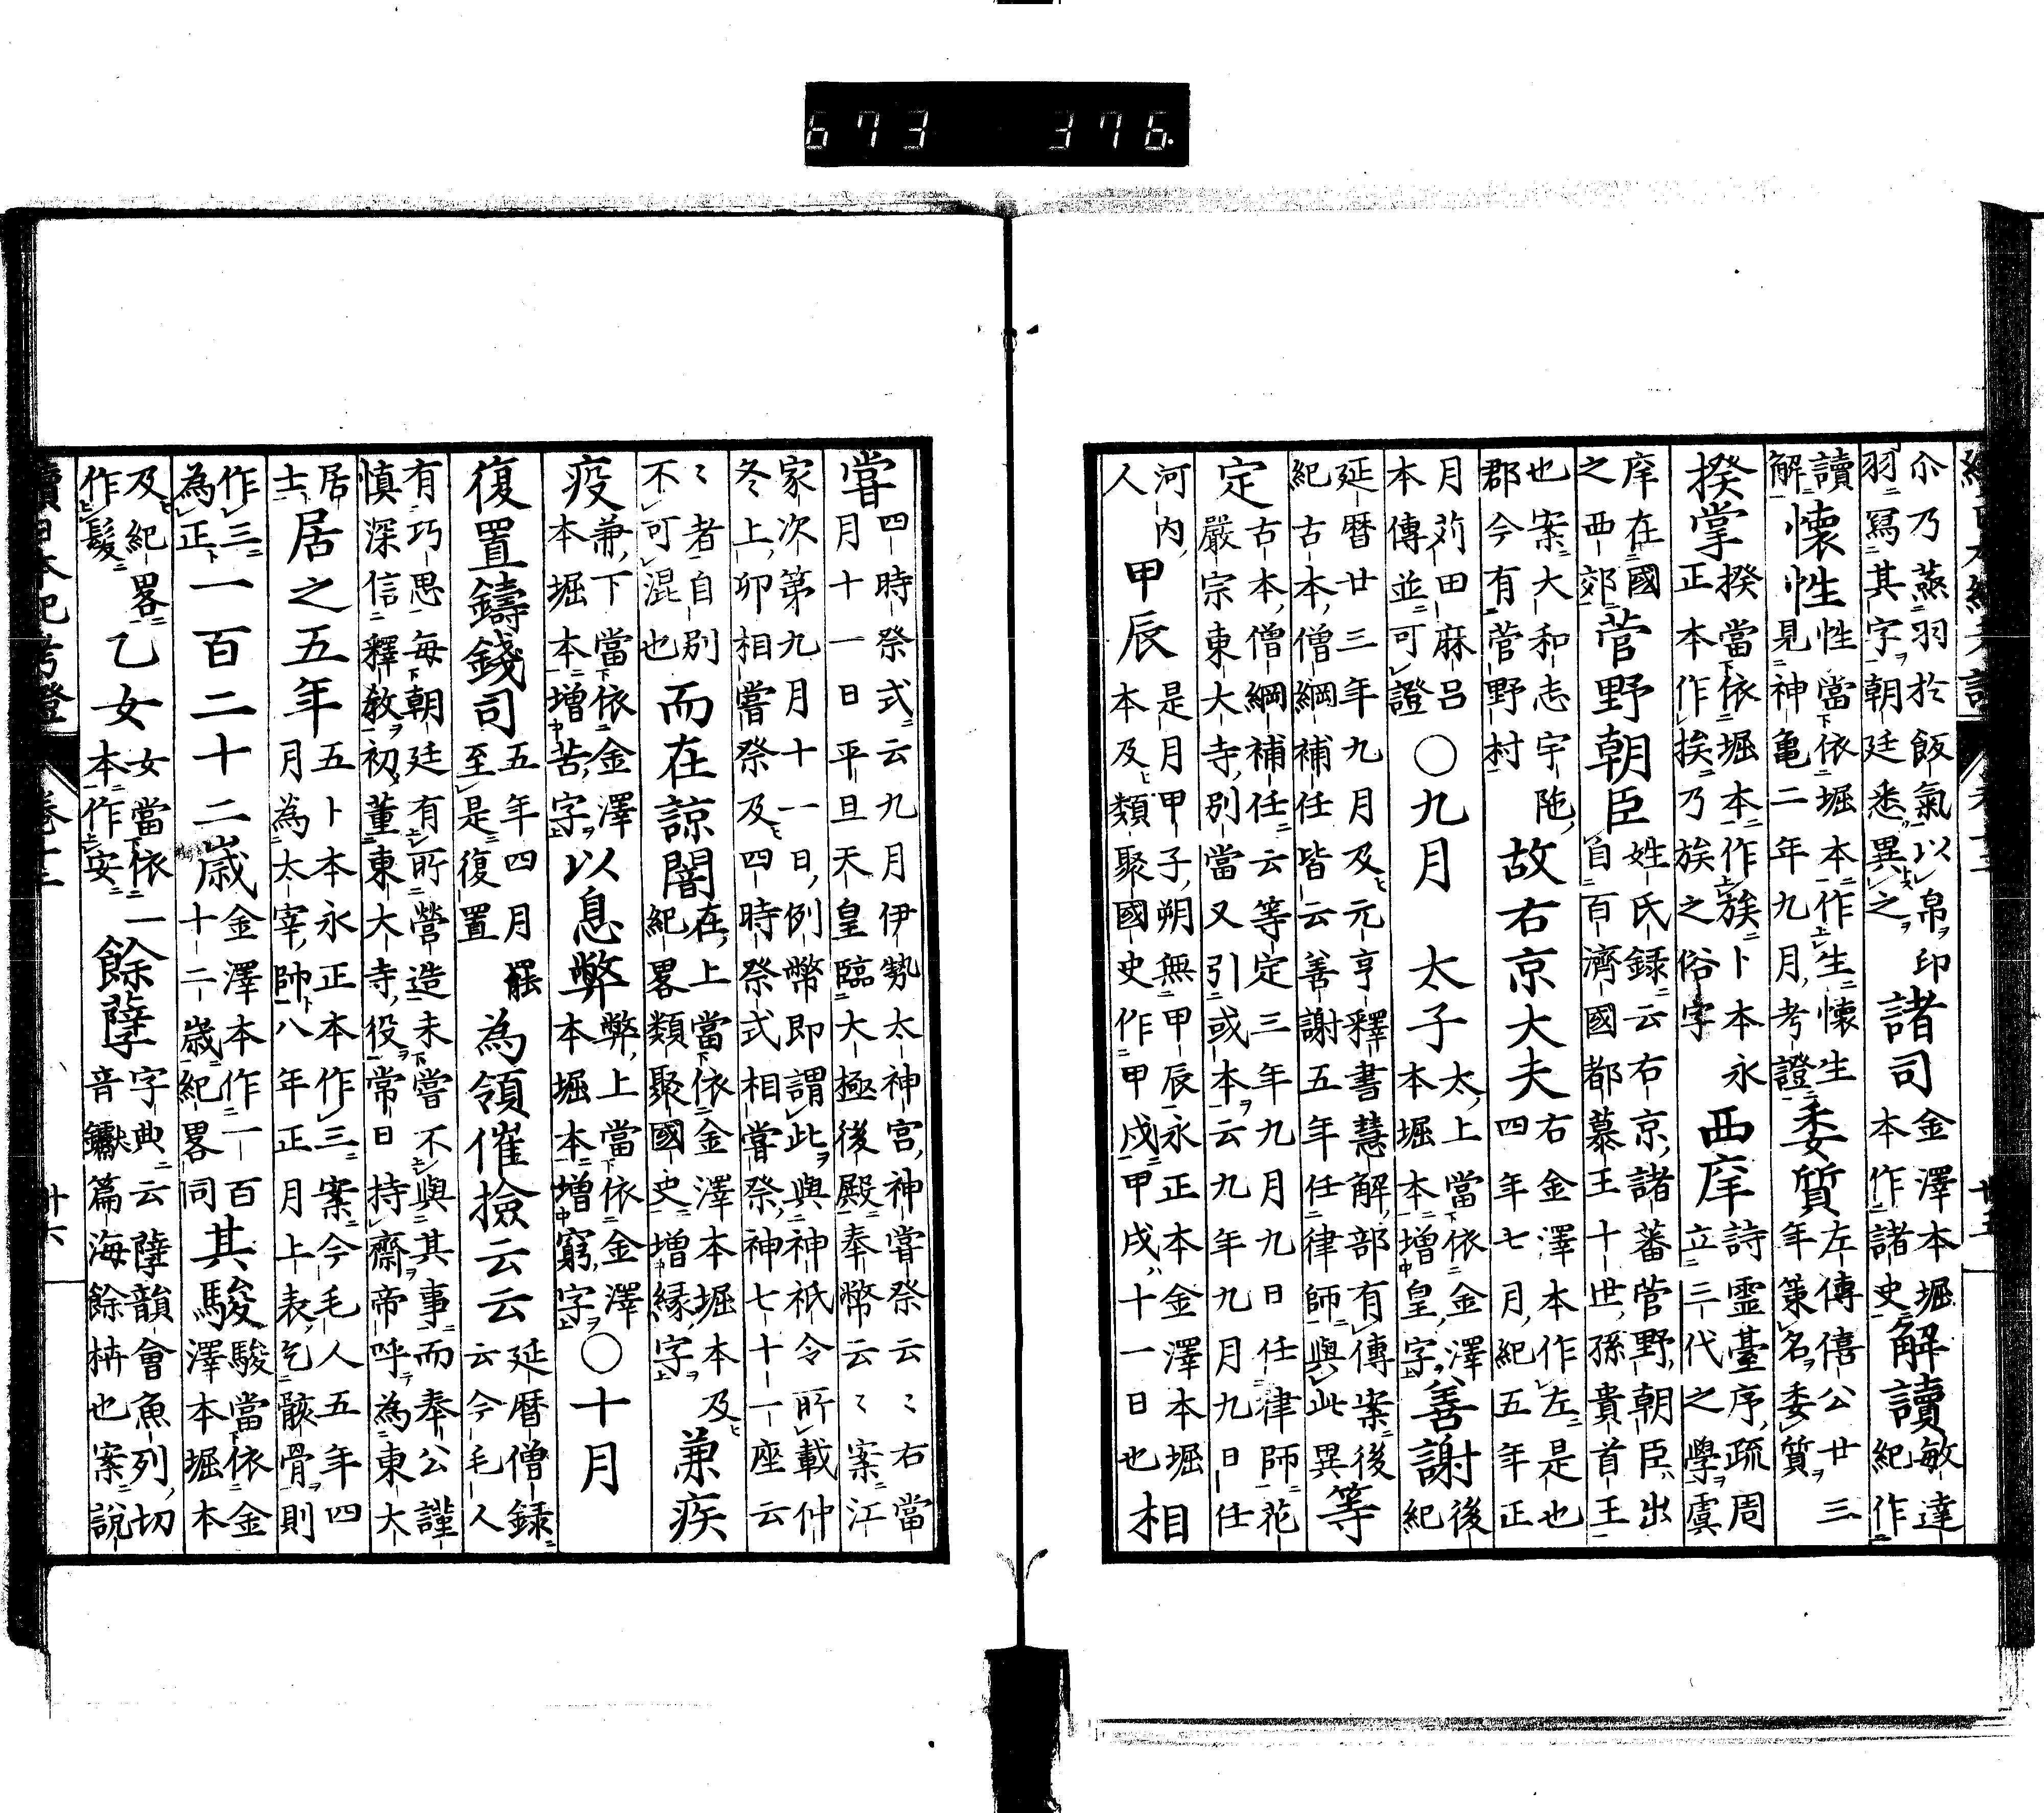 續日本紀考證 卷十二 廿五
尒乃燕羽於飯氣以帛印羽寫其字朝廷悉異之諸司金澤本堀本作諸史解讀敏達紀作
讀解懷性性當依堀本作生懷生見神亀二年九月考證委質左傳僖公廿三年策名委質
揆掌揆當依堀本作族卜本永正本作挨乃族之俗字西庠詩霊臺序疏周立三代之學虞
庠在國之西郊菅野朝臣姓氏録云右京諸蕃菅野朝臣出自百濟國都慕王十世孫貴首王
也案大和志宇陁郡今有菅野村故右京大夫右金澤本作左是也四年七月紀五年正
月苅田麻呂本傳並可證〇九月 太子太上當依金澤本堀本增皇字善謝後紀
延暦廿三年九月及元亨釋書慧解部有傳案後紀古本僧綱補任皆云善謝五年任律師與此異等
定古本僧綱補任云等定三年九月九日任律師花嚴宗東大寺別當又引或本云九年九月九日任
河内人甲辰是月甲子朔無甲辰永正本金澤本堀本及類聚國史作甲戌甲戌十一日也相
嘗四時祭式云九月伊勢太神宮神嘗祭云〻右當月十一日平旦天皇臨大極後殿奉幣云〻案江
家次第九月十一日例幣即謂此與神祇令所載仲冬上卯相嘗祭及四時祭式相嘗祭神七十一座云
〻者自別不可混也而在諒闇在上當依金澤本堀本及紀畧類聚國史增縁字兼疾
疫兼下當依金澤本堀本增苦字以息弊弊上當依金澤本堀本增窮字〇十月
復置鑄錢司五年四月罷至是復置為領催撿云云延暦僧録云今毛人
有巧思每朝廷有所營造未嘗不與其事而奉公謹慎深信釋教初董東大寺役常日持齋帝呼為東大
居士居之五年五卜本永正本作三案今毛人五年四月為太宰帥八年正月上表乞骸骨則
作三為正一百二十二歳金澤本作一百十二歳紀畧同其駿駿當依金澤本堀本
及紀畧作髮乙女女當依一本作安餘孽字典云孽韻會魚列切音钀篇海餘枿也案説
續日本紀考證 卷十二 廿六
673 376.